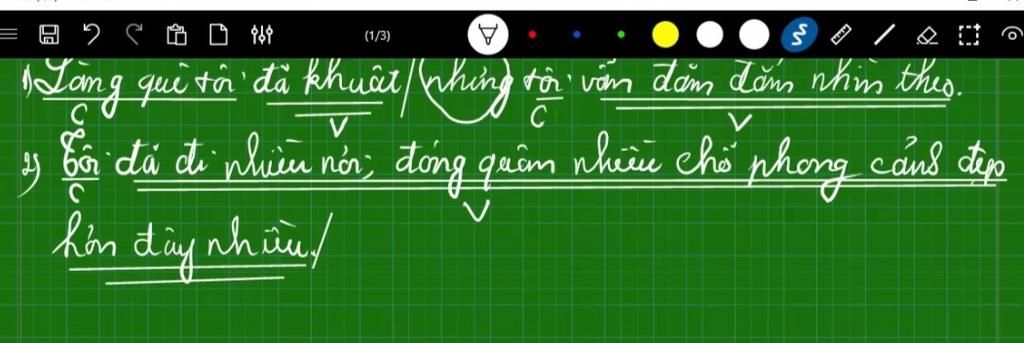 (1/3)
1) Làng quê tôi đã khuất / nhưng tôi vẫn đăm đắm nhìn theo.
C V C V
2) Tôi đã đi nhiều nơi, đóng quân nhiều chỗ phong cảnh đẹp
C V
hơn đây nhiều /